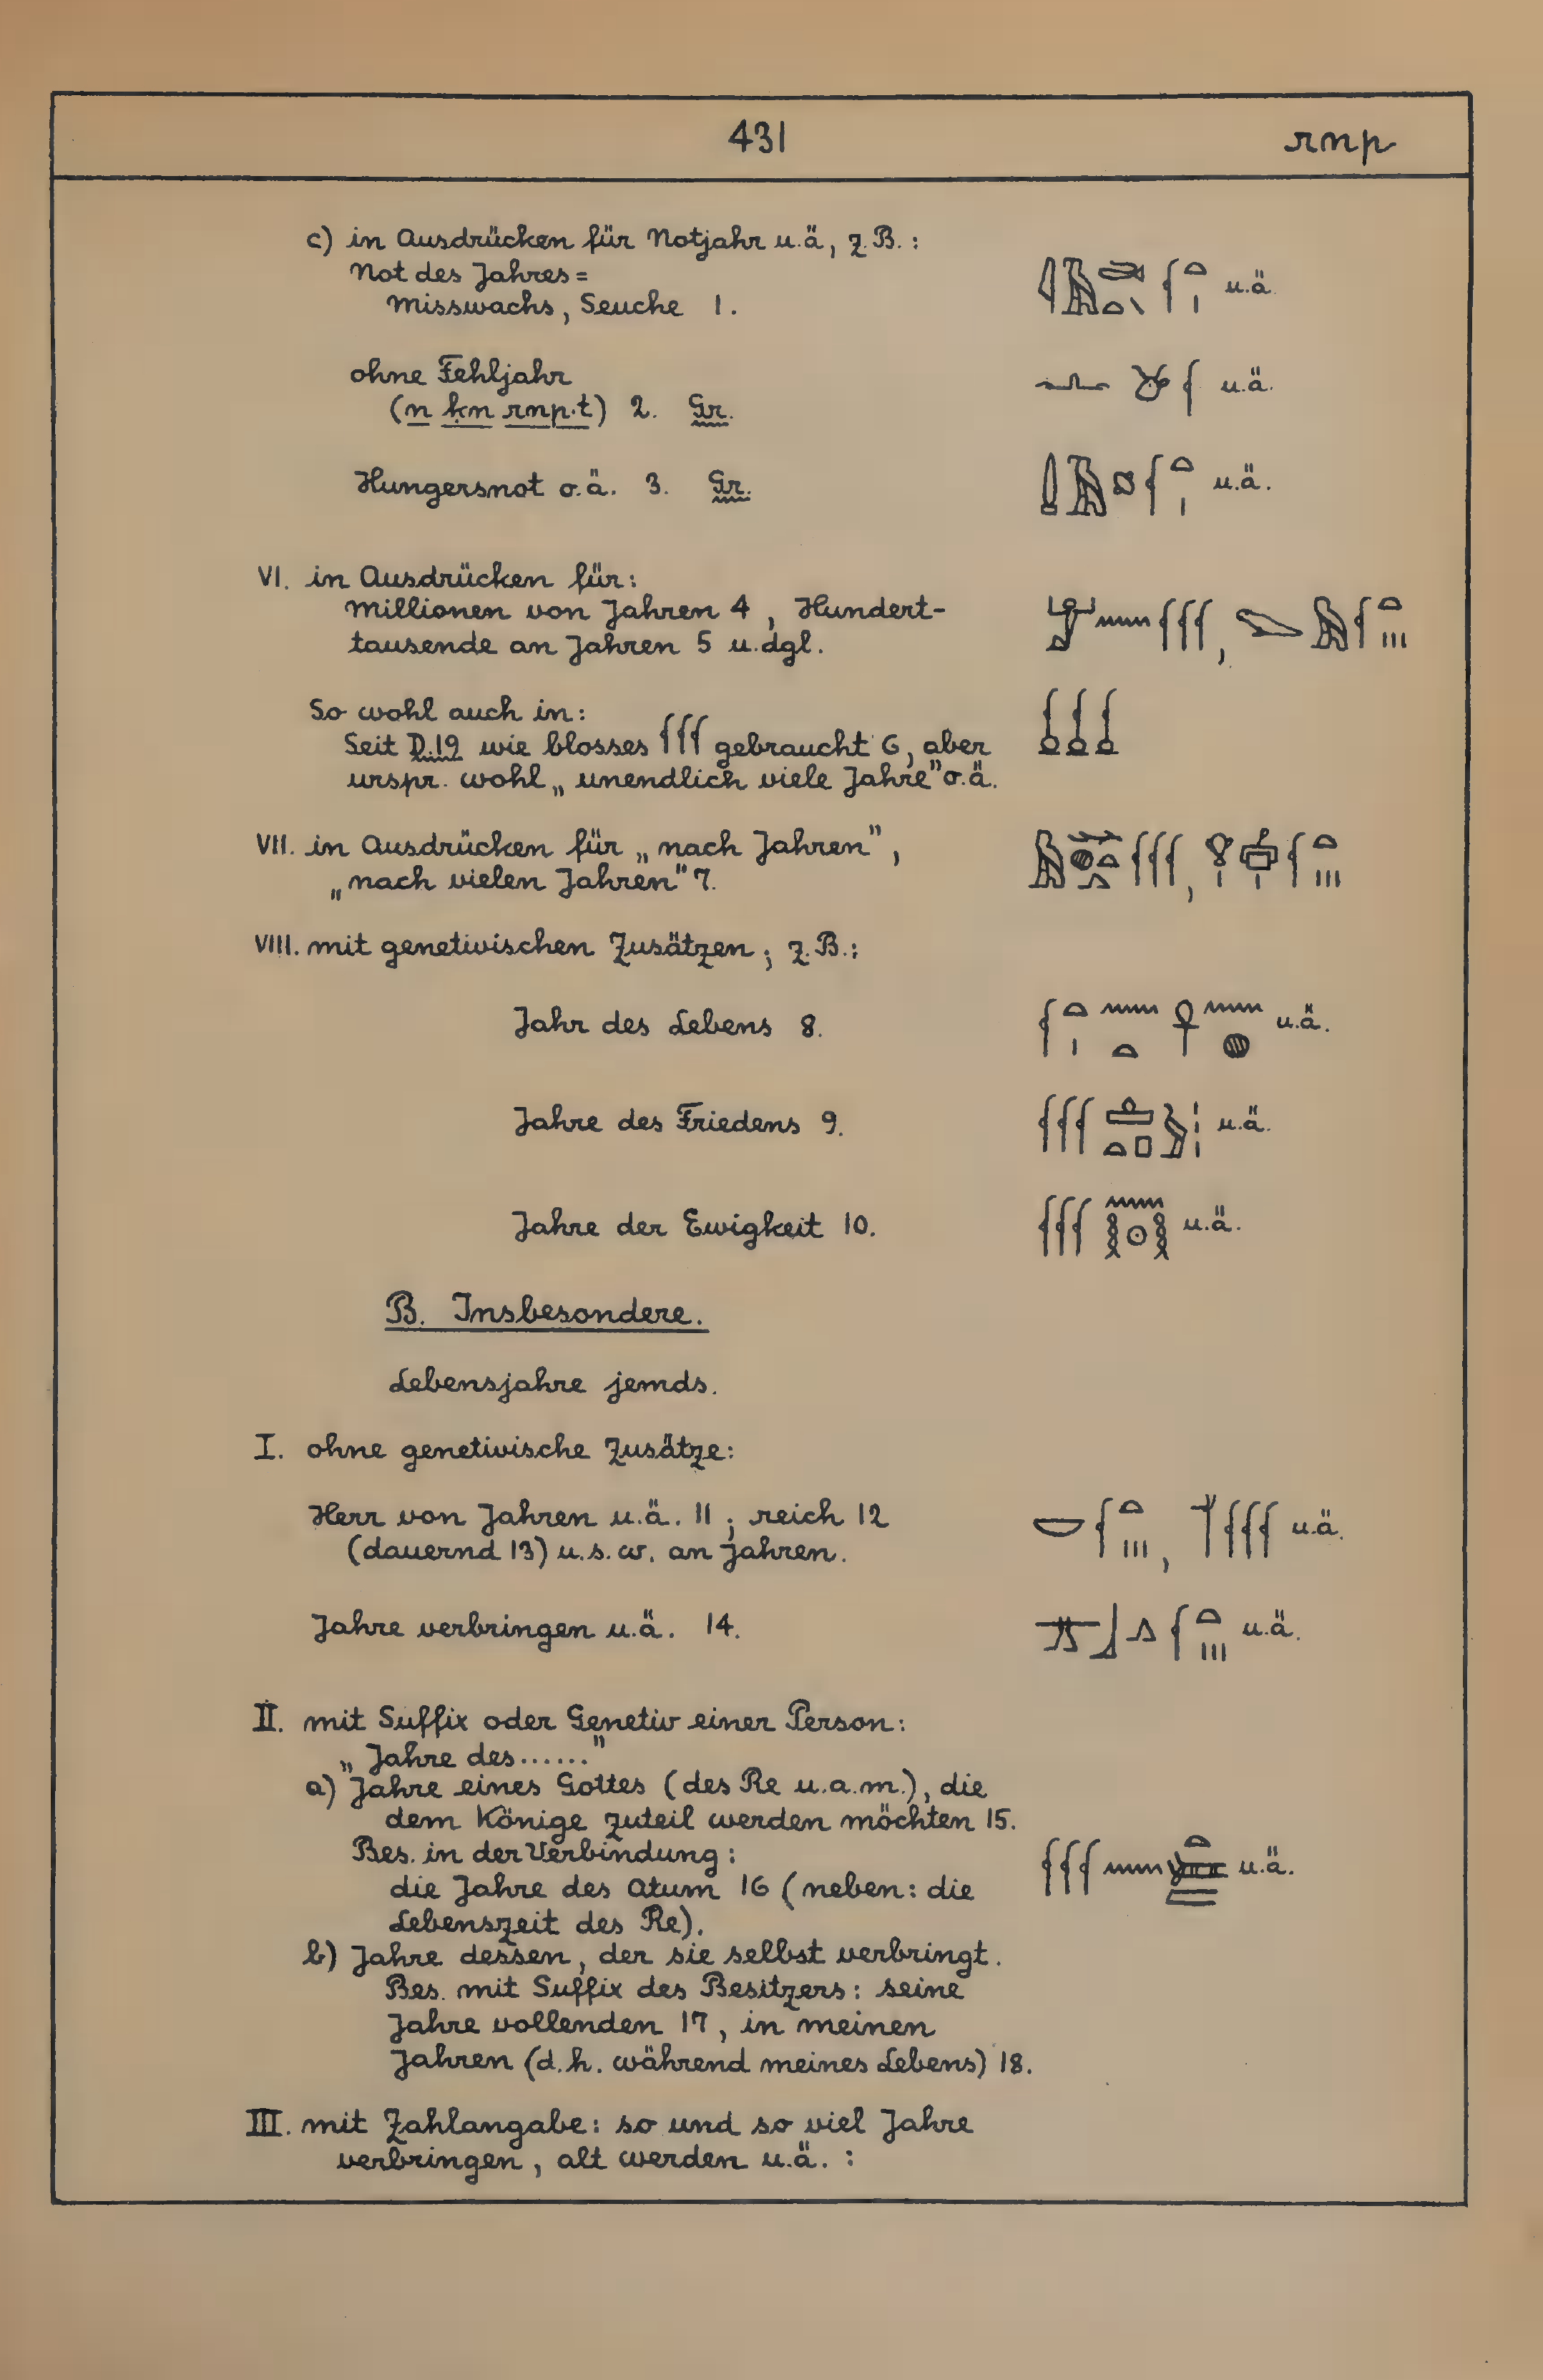 431 rnp
c) in Ausdrücken für Notjahr u.ä., z.B.:
Not des Jahres =
Misswachs, Seuche 1. u.ä.
ohne Fehljahr u.ä.
(n ḳn rnp.t) 2. Gr.
Hungersnot o.ä. 3. Gr. u.ä.
VI. in Ausdrücken für:
Millionen von Jahren 4, Hundert-
tausende an Jahren 5 u.dgl.
So wohl auch in:
Seit D.19 wie blosses 𓆳𓆳𓆳 gebraucht 6, aber
urspr. wohl „unendlich viele Jahre" o.ä.
VII. in Ausdrücken für „nach Jahren",
„nach vielen Jahren" 7.
VIII. mit genetivischen Zusätzen; z.B.:
Jahr des Lebens 8. u.ä.
Jahre des Friedens 9. u.ä.
Jahre der Ewigkeit 10. u.ä.
B. Insbesondere.
Lebensjahre jemds.
I. ohne genetivische Zusätze:
Herr von Jahren u.ä. 11; reich 12 u.ä.
(dauernd 13) u.s.w. an Jahren.
Jahre verbringen u.ä. 14. u.ä.
II. mit Suffix oder Genetiv einer Person:
„Jahre des......"
a) Jahre eines Gottes (des Re u.a.m.), die
dem Könige zuteil werden möchten 15.
Bes. in der Verbindung:
die Jahre des Atum 16 (neben: die u.ä.
Lebenszeit des Re).
b) Jahre dessen, der sie selbst verbringt.
Bes. mit Suffix des Besitzers: seine
Jahre vollenden 17, in meinen
Jahren (d.h. während meines Lebens) 18.
III. mit Zahlangabe: so und so viel Jahre
verbringen, alt werden u.ä. :